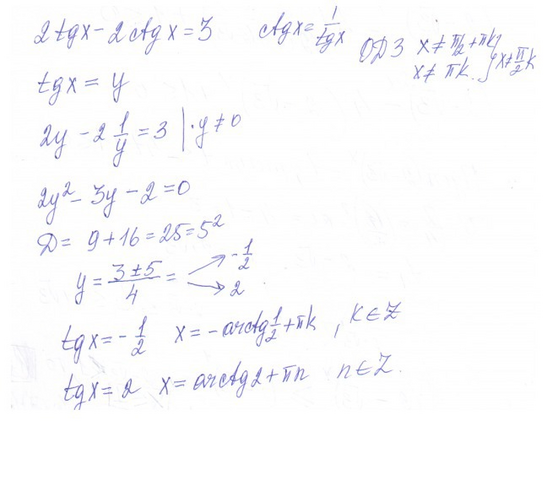 2tgx - 2ctgx = 3   ctgx = 1/tgx   ОДЗ x ≠ π/2 + πk, x ≠ πk. } x ≠ π/2 k
tgx = y
2y - 2 1/y = 3 | · y ≠ 0
2y² - 3y - 2 = 0
D = 9 + 16 = 25 = 5²
y = (3 ± 5)/4 = → -1/2 → 2
tgx = -1/2   x = -arctg 1/2 + πk , k ∈ Z
tgx = 2   x = arctg2 + πn   n ∈ Z.